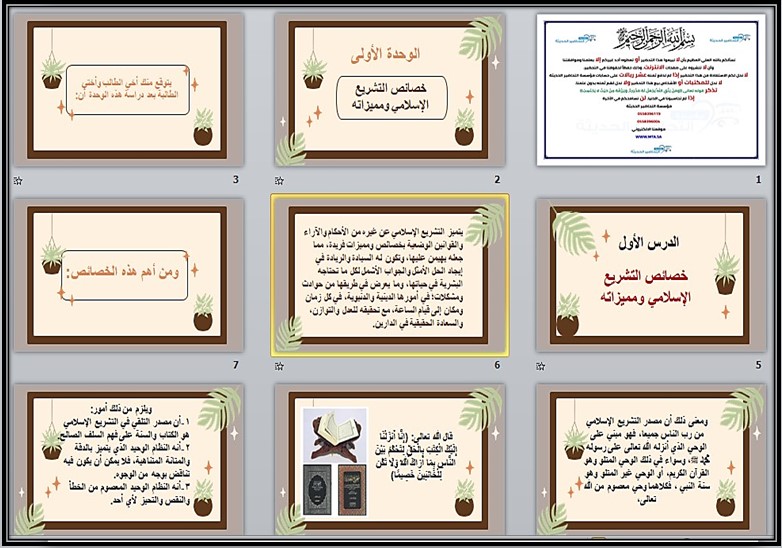 بسم الله الرحمن الرحيم
WWW.MTA.SA
1
الوحدة الأولى
خصائص التشريع
الإسلامي ومميزاته
2
يتوقع منك أخي الطالب وأختي
الطالبة بعد دراسة هذه الوحدة أن:
3
الدرس الأول
خصائص التشريع
الإسلامي ومميزاته
5
يتميز التشريع الإسلامي عن غيره من الأحكام والآراء
والقوانين الوضعية بخصائص ومميزات فريدة، مما
جعله يهيمن عليها، وتكون له السيادة والريادة في
إيجاد الحل الأمثل والجواب الأشمل لكل ما تحتاجه
البشرية في حياتها، وما يعرض في طريقها من حوادث
ومشكلات؛ في أمورها الدينية والدنيوية، في كل زمان
ومكان إلى قيام الساعة، مع تحقيقه للعدل والتوازن،
والسعادة الحقيقية في الدارين.
6
ومن أهم هذه الخصائص:
7
ومعنى ذلك أن مصدر التشريع الإسلامي
من رب الناس جميعا، فهو مبني على
الوحي الذي أنزله الله تعالى على رسوله
محمد ﷺ، وسواء في ذلك الوحي المتلو وهو
القرآن الكريم، أو الوحي غير المتلو وهو
سنة النبي ، فكلاهما وحي معصوم من الله
تعالى،
قال الله تعالى: (إِنَّا أَنزَلْنَا
إِلَيْكَ الْكِتَابَ بِالْحَقِّ لِتَحْكُمَ بَيْنَ
النَّاسِ بِمَا أَرَاكَ اللَّهُ وَلَا تَكُن
لِّلْخَائِنِينَ خَصِيمًا)
ويلزم من ذلك أمور:
١-أن مصدر التلقي في التشريع الإسلامي
هو الكتاب والسنة على فهم السلف الصالح.
٢-أنه النظام الوحيد الذي يتميز بالدقة
والمتانة المتناهية، فلا يمكن أن يكون فيه
تناقض بوجه من الوجوه.
٣-أنه النظام الوحيد المعصوم من الخطأ
والنقص والتحيز لأي أحد.